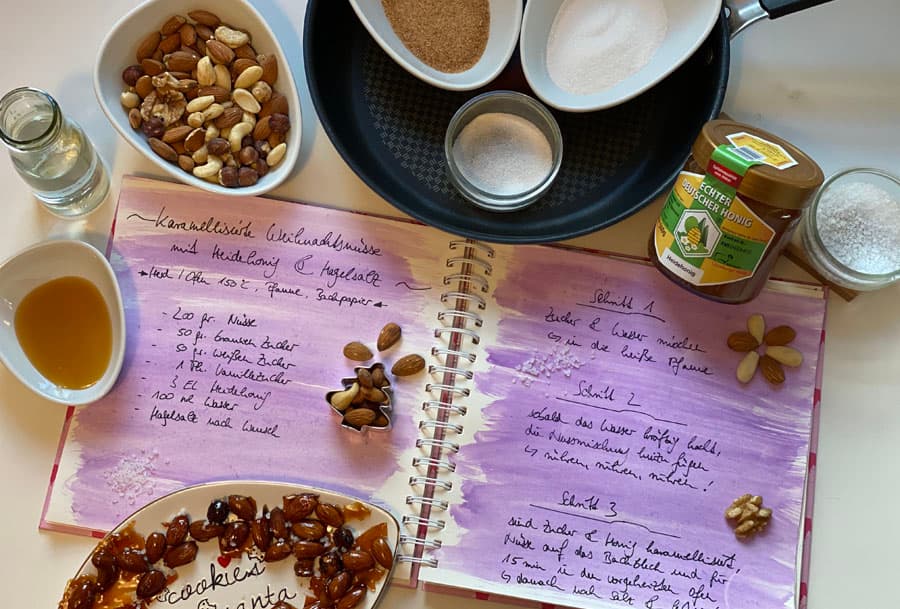 ~Karamellisierte Weihnachtsnüsse
mit Heidehonig & Hagelsalz ~
Herd / Ofen 150°C, Pfanne, Backpapier
- 200 gr. Nüsse
- 50 gr. braunen Zucker
- 50 gr. weißen Zucker
- 1 Pk. Vanillezucker
- 3 EL Heidehonig
- 100 ml Wasser
- Hagelsalz nach Wunsch
Schritt 1
Zucker & Wasser mischen
↳ in die heiße Pfanne
Schritt 2
sobald das Wasser kräftig kocht,
die Nussmischung hinzufügen
↳ rühren, rühren, rühren!
Schritt 3
sind Zucker & Honig karamellisiert,
Nüsse auf das Backblech und für
15 min in den vorgeheizten Ofen
↳ danach mit Salz &
ECHTER
DEUTSCHER HONIG
Heidehonig
cookies
santa